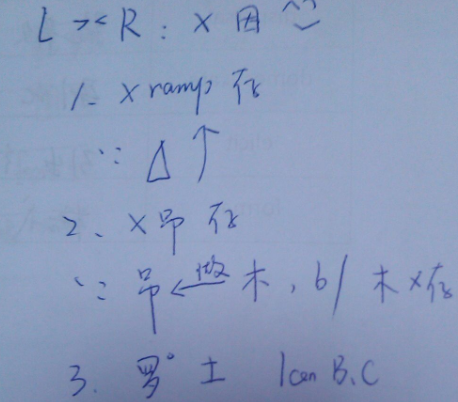 L >< R : × 因
1. × ramp 存
∵ △ ↑
2、 × 吊 存
∵ 吊 ←做 木 , b/ 木 × 存
3. 罗° 土 1 cen B.C